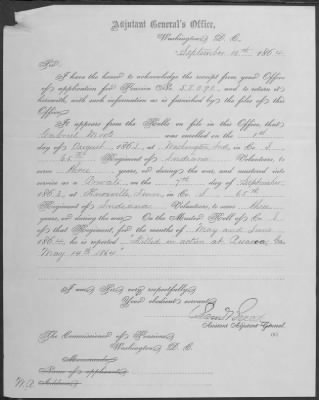 Adjutant General's Office,
Washington, D. C.
September 12th, 1864.
Sir:
I have the honor to acknowledge the receipt from your Office
of application for Pension No. and to return it
herewith, with such information as is furnished by the files of this
Office.
It appears from the Rolls on file in this Office, that
Gabriel was enrolled on the 1st
day of August 1863, at Washington Ind, in Co. I
65th Regiment of Indiana Volunteers, to
serve three years, or during the war, and mustered into
service as a Private, on the 7th day of September,
1863, at Knoxville, Tenn, in Co. I 65th
Regiment of Indiana Volunteers, to serve three
years, or during the war. On the Muster Roll of Co. I
of that Regiment, for the months of May and June
1864, he is reported "Killed in action at Ga.
May 14th 1864"
I am, Sir, very respectfully,
Your obedient servant,
Assistant Adjutant General.
The Commissioner of Pensions
Washington, D. C.
Memoranda
Name of applicant
Address